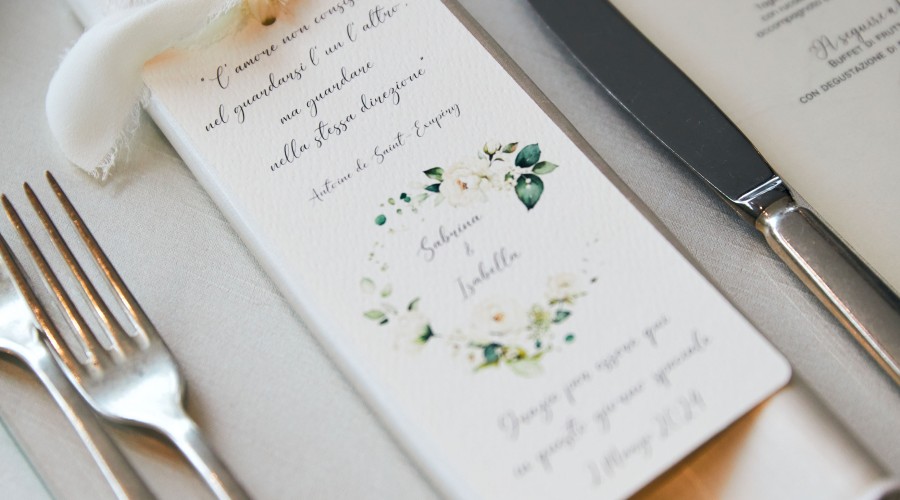 "L'amore non consis
nel guardarsi l'un l'altro,
ma guardare
nella stessa direzione"
Antoine de Saint-Exupéry
Sabrina
&
Isabella
Grazie per essere qui
in questo giorno speciale
2024
accompagnato
A seguire
BUFFET DI FRUTT
CON DEGUSTAZIONE DI